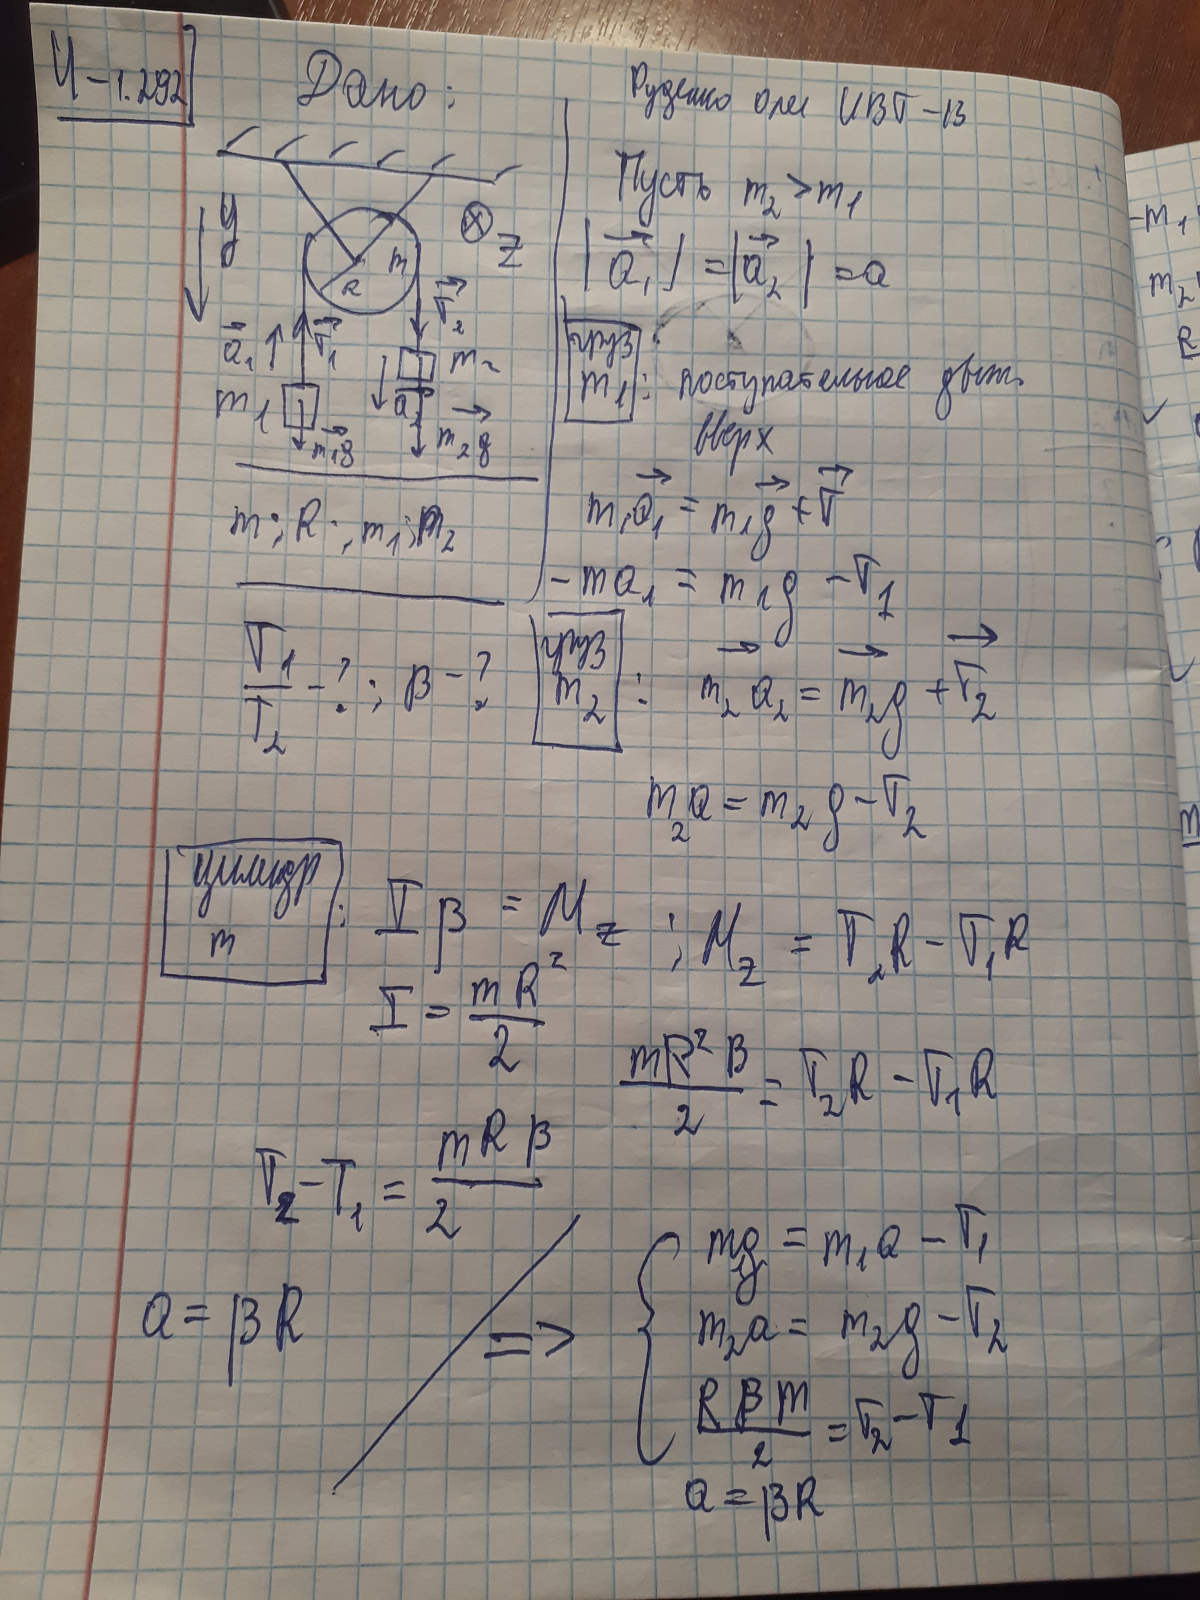 И-1.292
Дано:
Руденко Олег ИВТ-13
y
z
m
R
T₂
a₁ T₁
m₂
m₁ a₂
m₁g m₂g
m; R; m₁; m₂
T₁/T₂ -?; β -?
Пусть m₂ > m₁
|a₁| = |a₂| = a
груз m₁: поступательное движ.
вверх
m₁a₁ = m₁g + T
-ma₁ = m₁g - T₁
груз m₂: m₂a₂ = m₂g + T₂
m₂a = m₂g - T₂
цилиндр m: Iβ = M_z; M_z = T₂R - T₁R
I = mR²/2
mR²β/2 = T₂R - T₁R
T₂ - T₁ = mRβ/2
a = βR
=>
mg = m₁a - T₁
m₂a = m₂g - T₂
Rβm/2 = T₂ - T₁
a = βR
-m₁
m₂
R
m